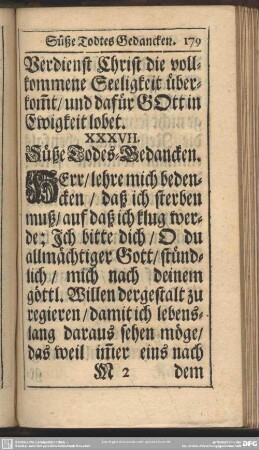 Süße Todtes Gedancken. 179
Verdienst Christ die voll-
kommene Seeligkeit über-
kom̃t/ und dafür GOtt in
Ewigkeit lobet.
XXXVII.
Süße Todes-Gedancken.
HErr/ lehre mich beden-
cken / daß ich sterben
muß/ auf daß ich klug wer-
de: Ich bitte dich / O du
allmächtiger Gott/ stünd-
lich / mich nach deinem
göttl. Willen dergestalt zu
regieren / damit ich lebens-
lang daraus sehen möge/
das weil im̃er eins nach
M 2 dem
DFG